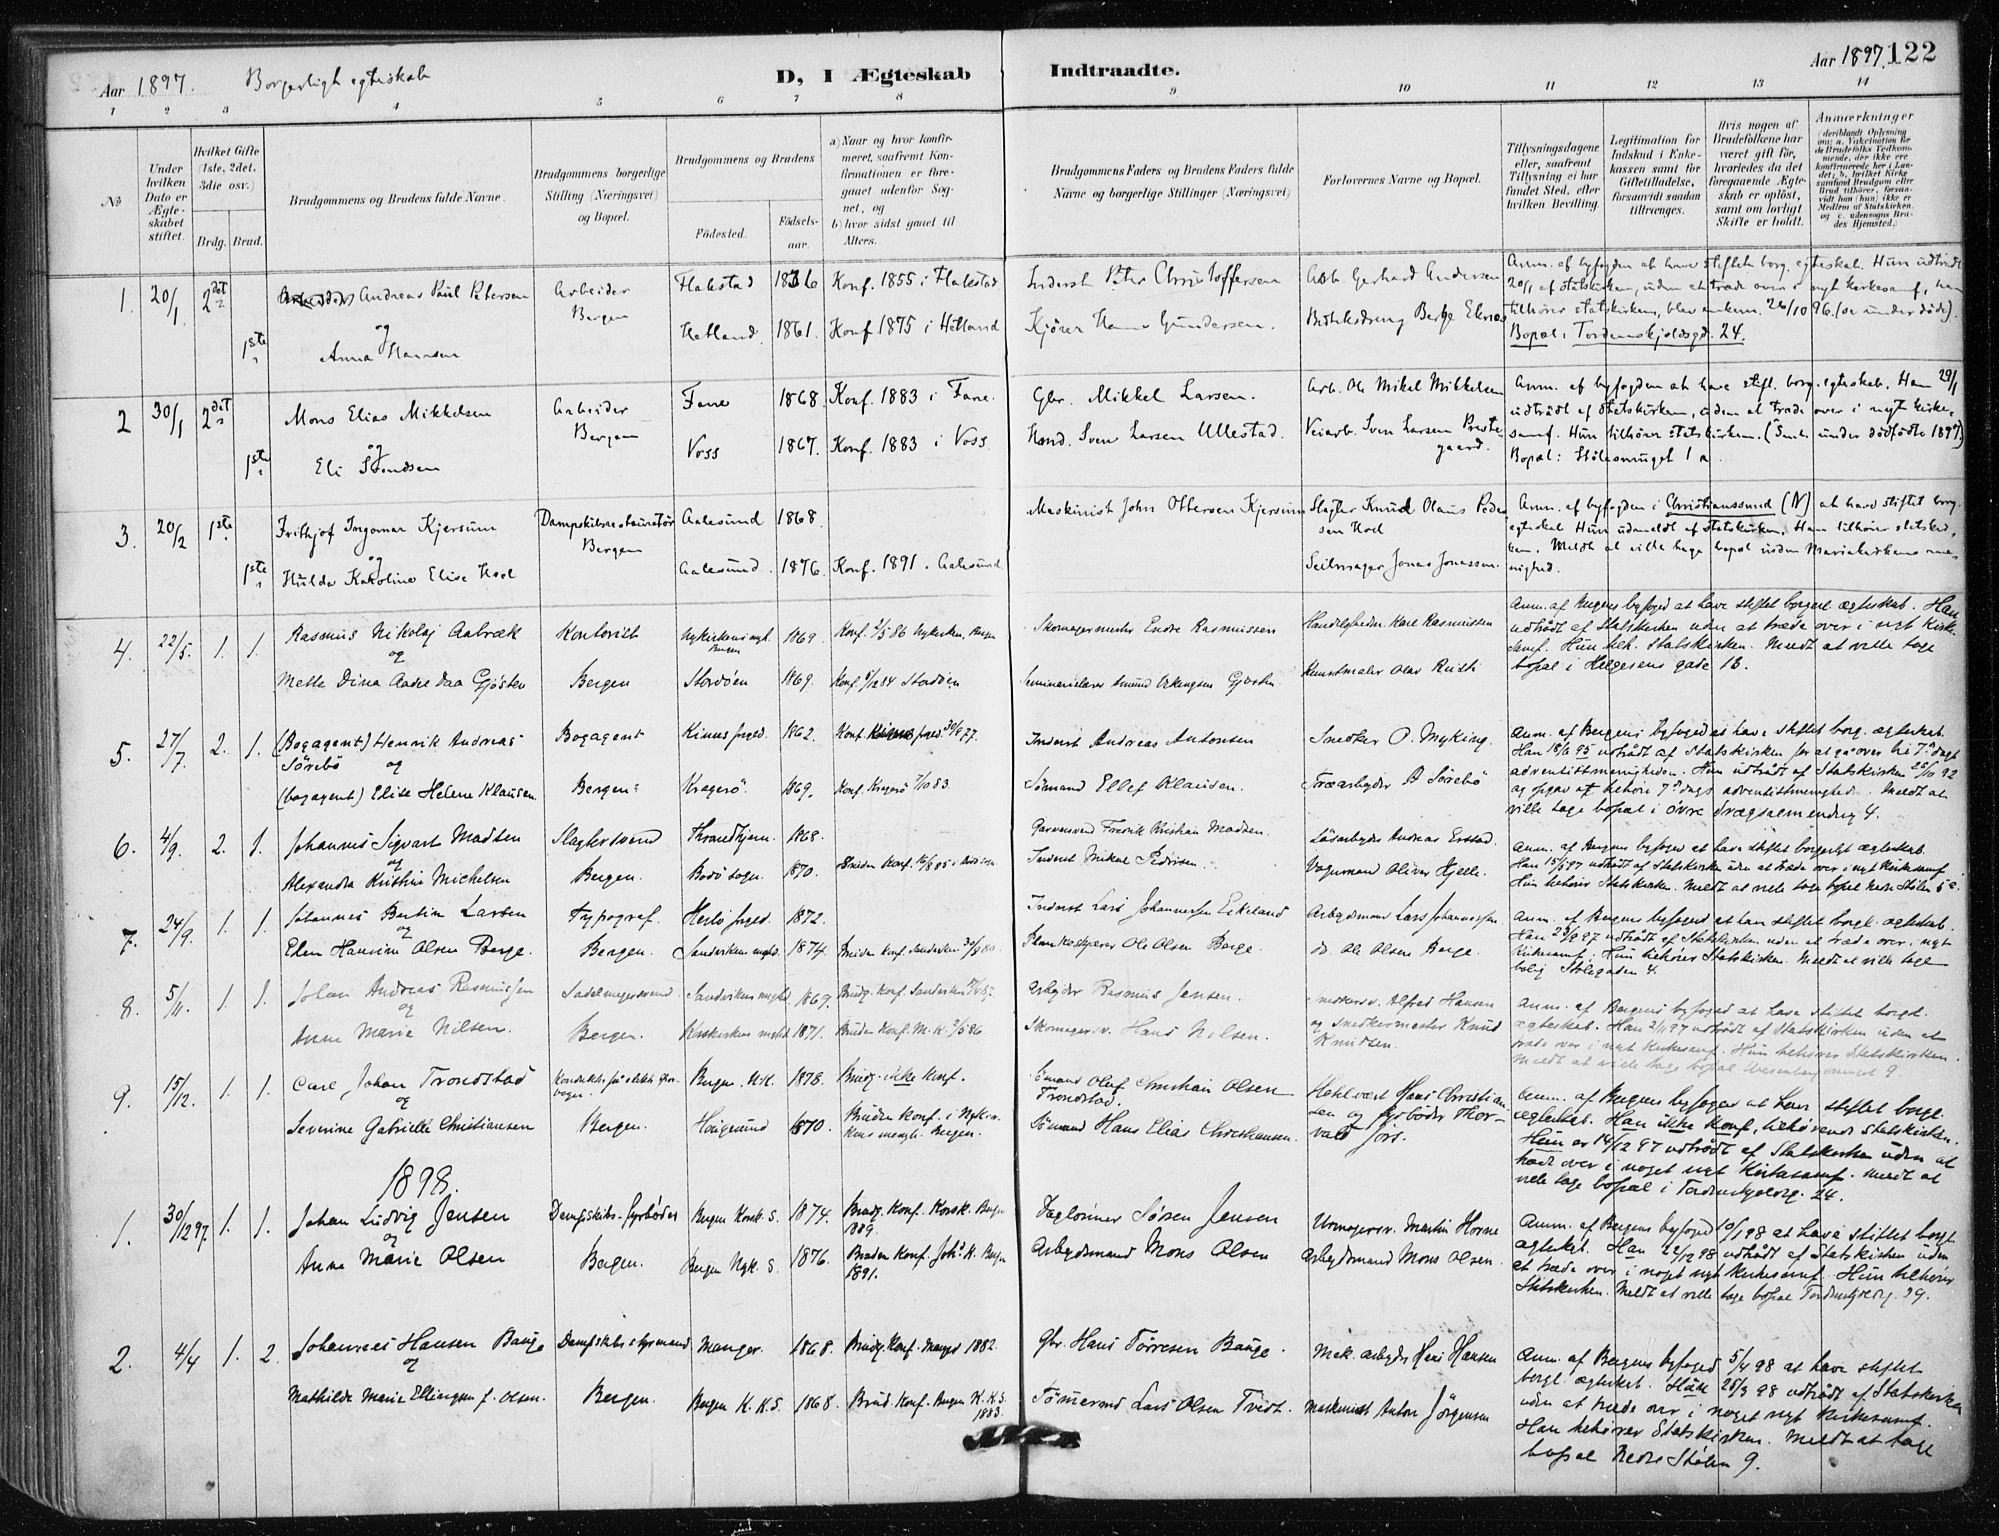 Aar 1897. Borgerligt egteskab
D, I Ægteskab Indtraadte.
Aar 1897. 122
1 2 3 4 5 6 7 8 9 10 11 12 13 14
№
Under hvilken Dato er Ægteskabet stiftet.
Hvilket Gifte (1ste, 2det, 3die osv.)
Brdg. Brud.
Brudgommens og Brudens fulde Navne.
Brudgommens borgerlige Stilling (Næringsvei) og Bopæl.
Brudgommens og Brudens
Födested. Födselsaar.
a) Naar og hvor konfirmeret, saafremt Konfirmationen er foregaaet udenfor Sognet, og
b) hvor sidst gaaet til Alters.
Brudgommens Faders og Brudens Faders fulde Navne og borgerlige Stillinger (Næringsvei)
Forlovernes Navne og Bopæl.
Tillysningsdagene eller, saafremt Tillysning ei har fundet Sted, efter hvilken Bevilling.
Legitimation for Indskud i Enkekassen samt for Giftetilladelse, forsaavidt saadan tiltrænges.
Hvis nogen af Brudefolkene har været gift för, hvorledes da det foregaaende Ægteskab er oplöst, samt om lovligt Skifte er holdt.
Anmærkninger
1. 20/1 2det Andreas Paul Petersen Arbeider Bergen Flakstad 1836 Konf. 1855 i Flakstad Inderst Peter Christoffersen Arb. Gerhard Andersen
og
1ste Anna Hansen Hetland 1861. Konf. 1875 i Hetland Kjörer Hans Gundersen.
Anm. af byfogden at have stiftet borg. egteskab. Hun udtraadt
20/1 af statskirken, uden at træde over i nyt kirkesamf., han
tilhörer statskirken, blev enkem. 26/10 96.
Bopæl: Tordenskjoldsgd. 24.
2 30/1 2det Mons Elias Mikkelsen Arbeider Bergen Fane 1868. Konf. 1883 i Fane. Gbr. Mikkel Larsen. Arb. Ole Mikel Mikkelsen
og
1ste Eli Svendsen Voss 1867. Konf. 1883 i Voss. Sven Larsen Ullestad. Veiarb. Sven Larsen Prestegaard.
Anm. af byfogden at have stift. borg. egteskab. Han 29/1
udtrådt af statskirken, uden at træde over i nyt kirkesamf. Hun tilhörer statskirken.
Bopæl: Stölesmuget 1 a.
3. 20/2 1ste Frithjof Ingomar Kjersum Dampskibsrestauratör Bergen Aalesund 1868. Maskinist John Ottersen Kjersum Slagter Knud Olaus Pedersen Hoel
og
1ste Hulda Karoline Elise Hoel Aalesund. 1876. Konf. 1891. Aalesund Seilmager Jonas Jonassen.
Anm. af byfogden i Christianssund (N) at have stiftet borg.
egteskab. Hun udmeldt af statskirken. Han tilhörer statskirken. Meldt at ville tage bopæl inden Mariakirkens menighed.
4. 22/5. 1. 1. Rasmus Nikolaj Aabræk Kontorist Nykirkens mgt. Bergen 1869. Konf. 2/5 86 Nykirken, Bergen Skomagermester Endre Rasmussen Karl Rasmussen
og
Mette Dina Aadredaa Gjösten Bergen Stordöen 1869. Konf. 84 Stordöen Gjösten Kunstmaler Olav Rusti
Anm. af Bergens byfoged at have stiftet borgerl. ægteskab. Han
udtrådt af Statskirken uden at træde over i nyt Kirkesamf. Hun tilh. Statskirken. Meldt at ville tage
bopæl i Helgesens gade 1B.
5. 27/7. 2. 1. (Bogagent) Henrik Andreas Sörebö Bogagent Kinns prgd. 1862. Inderst Andreas Antonsen Snedker O. Myking.
og
(bogagent) Elise Helene Klausen Bergen Kragerö 1869. Konf. Kragerö 7/10 83. Sömand Ellef Klausen. Træarbeider A Sörebö
Anm. af Bergens byfoged at have stiftet borg. ægteskab.
Han 18/6 95 udtrådt af Statskirken for at gå over til 7de dags
adventistmenigheden. Hun udtrådt af Statskirken 26/10 92
og opgav at tilhöre 7de dags adventistmenighed. Meldt at
ville tage bopæl i Övre Drægsalmending 4.
6. 4/9. 2. 1. Johannes Sigvart Madsen Slagtersvend Throndhjem. 1868. Garversvend Fredrik Kristian Madsen. Andreas
og
Alexandra Kristine Michelsen Bergen. Bodö sogn. 1870. Inderst Mikal Pedersen Vognmand Oliver Hjelle.
Anm. af Bergens byfoged at have stiftet borgerligt ægteskab.
Han 15/5 97 udtrådt af Statskirken uden at træde over i nyt Kirkesamf.
Hun tilhörer Statskirken. Meldt at ville tage bopæl Nedre Stölen 5 c.
7. 24/9. 1. 1. Johannes Bertin Larsen Typograf. Herlö prgd. 1872. Inderst Lars Johannessen Eikeland Arbeidsmand Lars Johannessen
og
Elen Hansine Olsen Berge. Bergen. Sandvikens mghd. 1874. Ole Olsen Berge. do. Ole Olsen Berge.
Anm. af Bergens byfoged at have stiftet borgl. ægteskab.
Han 23/9 97 udtrådt af Statskirken uden at træde over i nyt
Kirkesamf. Hun tilhörer Statskirken. Meldt at ville tage
bolig Stölegaden 4.
8. 5/11. 1. 1. Johan Andreas Rasmussen Sadelmagersvend. Sandvikens mghd 1869. Arbeider Rasmus Jensen. Snedkersv. Alfred Hansen
og
Anne Marie Nilsen. Bergen. Korskirkens mghd 1871. Skomagersv. Hans Nilsen. og Snedkermester Knud Knudsen.
Anm. af Bergens byfoged at have stiftet borgl.
ægteskab. Han 2/11 97 udtrådt af Statskirken uden at
træde over i nyt Kirkesamf. Hun tilhörer Statskirken.
Meldt at ville tage bopæl 9.
9. 15/12. 1. 1. Carl Johan Trondstad Bergen. N.K. 1878. Brudg. ikke konf. Sömand Oluf Christian Olsen Trondstad. Hans Christiansen og fyrböder Thorvald Jörs.
og
Severine Gabrielle Christiansen Bergen. Haugesund 1870. Bruden konf. i Nykirkens menigh. Bergen. Sömand Hans Elias Christiansen.
Anm. af Bergens byfoged at have stiftet borgl.
ægteskab. Han ikke konf., tilhörende Statskirken.
Hun er 14/12 97 udtrådt af Statskirken uden at
træde over i noget nyt Kirkesamf. Meldt at
ville tage bopæl i Tordenskjoldsg. 24.
1898.
1. 30/12 97. 1. 1. Johan Ludvig Jensen Dampskibs-fyrböder Bergen Korsk. S. 1874. Brudg. Konf. Korsk. Bergen 1889. Daglönner Sören Jensen Urmagersv. Martin Horne
og
Anna Marie Olsen Bergen. Bergen Nyk. S. 1876. Bruden Konf. Johs. K. Bergen 1891. Arbeidsmand Mons Olsen Arbeidsmand Mons Olsen.
Anm. af Bergens byfoged 10/1 98 at have stiftet borgl.
ægteskab. Han 22/12 98 udtrådt af Statskirken uden
at træde over i noget nyt Kirkesamf. Hun tilhörer
Statskirken. Meldt at ville tage bopæl Tordenskjoldsg. 39.
2. 4/4 1. 2. Johannes Hansen Bauge Dampskibsstyrmand Manger. 1868. Brudg. Konf. Manger 1882. Gbr. Hans Törresen Bauge. Mek. arbeider Hans Hansen
og
Mathilde Marie Ellingsen f. Olsen. Bergen. Bergen K.K.S. 1868. Brud. Konf. Bergen K.K.S. 1883. Tömmermd. Lars Olsen Tvedt. Maskinist Anton Jörgensen
Anm. af Bergens byfoged 5/4 98 at have stiftet
borgl. ægteskab. Hun 25/3 98 udtrådt af Statskirken
uden at træde over i noget nyt Kirkesamf.
Han tilhörer Statskirken. Meldt at tage
bopæl Nedre Stölen 9.